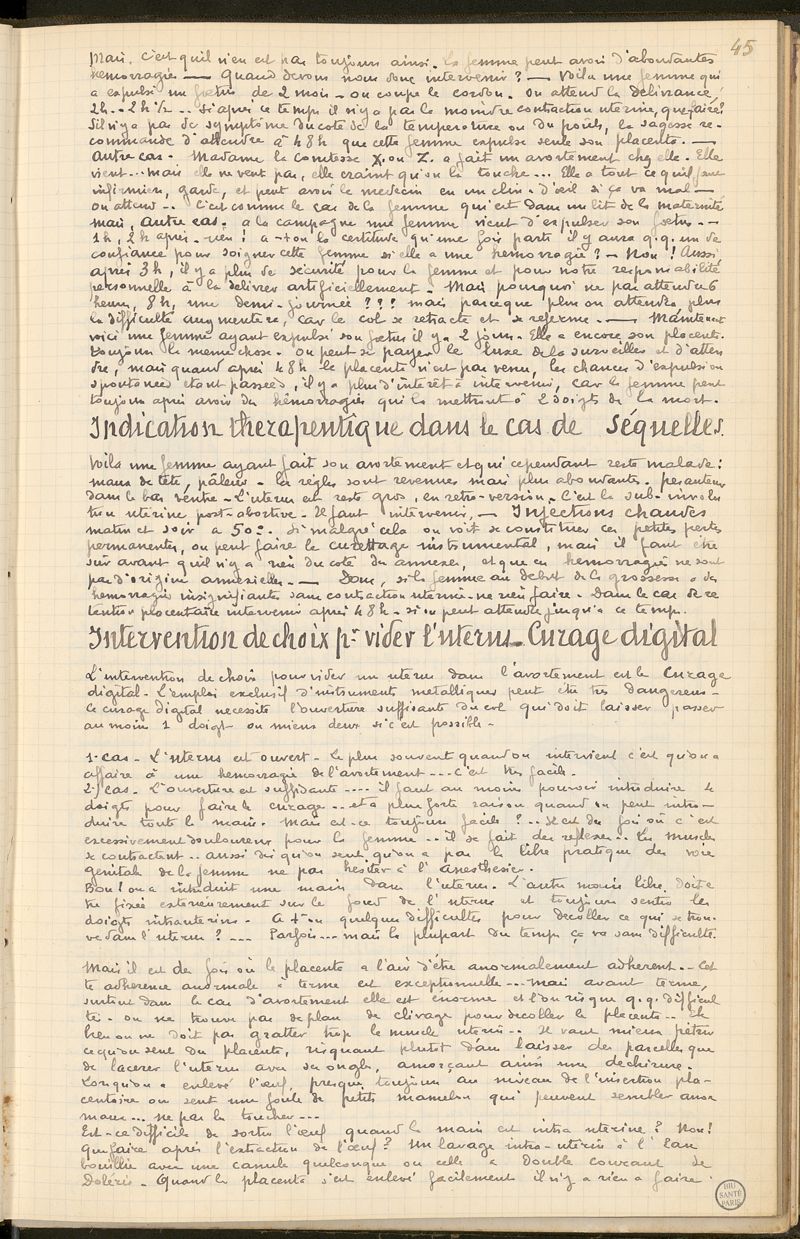 45
Mais, c'est qu'il n'en est pas toujours ainsi. La femme peut avoir d'abondantes
hémorragies — Quand devons nous donc intervenir ? — Voilà une femme qui
a expulsé un fœtus de 2 mois — on coupe le cordon. On attend la délivrance,
2h.. 2h ½ .. si après ce temps il n'y a pas la moindre contraction utérine, que faire?
S'il n'y a pas de symptôme du coté de la température ou du pouls, la sagesse re-
commande d'attendre à 48h que cette femme expulse seule son placenta. —
Autre cas. Madame la comtesse X. ou Z. a fait un avortement chez elle. Elle
vient... mais elle ne veut pas, elle craint qu'on la touche... Elle a tout ce qu'il faut
infirmière, garde, et peut avoir le médecin en un clin d'œil si ça va mal —
On attend.. C'est comme le cas de la femme qui est dans un lit de la maternité
mais, autre cas. a la campagne une femme vient d'expulser son fœtus. —
1h, 2h après. rien ! a-t-on la certitude qu'une fois parti il y aura q.q. un de
confiance pour soigner cette femme si elle a une hémorragie ? — Non ! Aussi
après 3h, il y a plus de sécurité pour la femme et pour notre responsabilité
personnelle à la délivrer artificiellement. Mais pourquoi ne pas attendre 6
heures, 8h, une demi-journée ? ? ? mais parceque plus on attendra plus
la difficulté augmentera, car le col se rétracte et se referme. — Maintenant
voici une femme ayant expulsé son fœtus il y a 2 jours. Elle a encore son placenta.
toujours la même chose. on peut se payer le luxe de la surveiller et d'atten
dre, mais quand après 48h le placenta n'est pas venu, les chances d'expulsion
spontanée étant passées, il y a plus d'intérêt à intervenir, car la femme peut
toujours après avoir des hémorragies qui la mettront à 2 doigts de la mort.
Indication thérapeutique dans le cas de Séquelles.
Voilà une femme ayant fait son avortement et qui cependant reste malade :
maux de tête, pâleur. les règles sont revenues mais plus abondantes. pesanteur
dans le bas ventre — L'utérus est resté gros, en rétro-version. C'est la sub-involu
tion utérine post-abortive. Il faut intervenir. — Injections chaudes
matin et soir a 50° — Si malgré cela on voit se constituer ces petites pertes
permanentes, on peut faire le curettage instrumental, mais il faut être
sûr avant qu'il n'y a rien du coté des annexes, et que ces hémorragies ne sont
pas d'origine annexielles. — Donc, si la femme au début de la grossesse a des
hémorragies insignifiantes sans contraction utérine. ne rien faire. Dans le cas de ré
tention placentaire intervenir après 48h. si on peut attendre jusqu'à ce temps.
Intervention de choix pr vider l'utérus_ Curage digital
L'intervention de choix pour vider un utérus dans l'avortement est le curage
digital. L'emploi exclusif d'instruments métalliques peut être très dangereux —
Le curage digital nécessite l'ouverture suffisante du col qui doit laisser passer
au moins 1 doigt ou mieux deux si c'est possible.
1- cas. L'utérus est ouvert. Le plus souvent quand on intervient c'est qu'on a
affaire à une hémorragie de l'avortement --- c'est très facile.
2-) cas. L'ouverture est suffisante .... il faut au moins pouvoir introduire 2
doigts pour faire le curage .. et a plus forte raison quand on peut intro-
duire toute la main. Mais est-ce toujours facile ? .. Il est des fois où c'est
excessivement douloureux pour la femme .. il se fait des réflexes .. Les muscles
se contractent .. aussi dès qu'on sent qu'on a pas la libre pratique des voies
génitales de la femme ne pas hésiter à l'anesthésier.
Bon ! on a introduit une main dans l'utérus. L'autre main libre doit ê
tre fixée extérieurement sur le fond de l'utérus et toujours sentir les
doigts intrautérins. A-t-on quelques difficultés pour décoller ce qui se trou-
ve dans l'utérus ? --- Parfois --- mais la plupart du temps ça va sans difficulté.
Mais il est des fois où le placenta a l'air d'être anormalement adhérent. — Cet
te adhérence anormale à terme est exceptionnelle --- mais avant terme,
surtout dans le cas d'avortement elle est énorme et l'on risque q.q. difficul
tés. on ne trouve pas de plan de clivage pour décoller le placenta .. Eh
bien on ne doit pas gratter trop le muscle utérin .. Il vaut mieux pétrir
ce qu'on sent du placenta, risquant plutôt d'en laisser des parcelles que
de lacérer l'utérus avec son ongle, amorçant ainsi une déchirure.
Lorsqu'on a enlevé l'œuf, presque toujours au niveau de l'insertion pla-
centaire on sent une foule de petits mamelons qui peuvent sembler anor
maux ... ne pas les toucher ---
Est-ce difficile de sortir l'œuf quand la main est intra utérine ? Non !
Que faire après l'extraction de l'œuf ? Un lavage intra-utérin à l'eau
bouillie avec une canule quelconque ou celle à double courant de
Doléris. Quand le placenta s'est enlevé facilement il n'y a rien a faire.
BIU
SANTÉ
PARIS